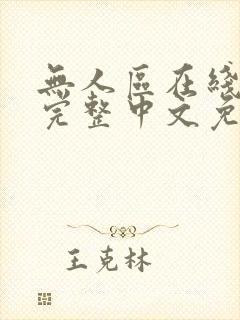 無人區在綫
完整中文免
王克林